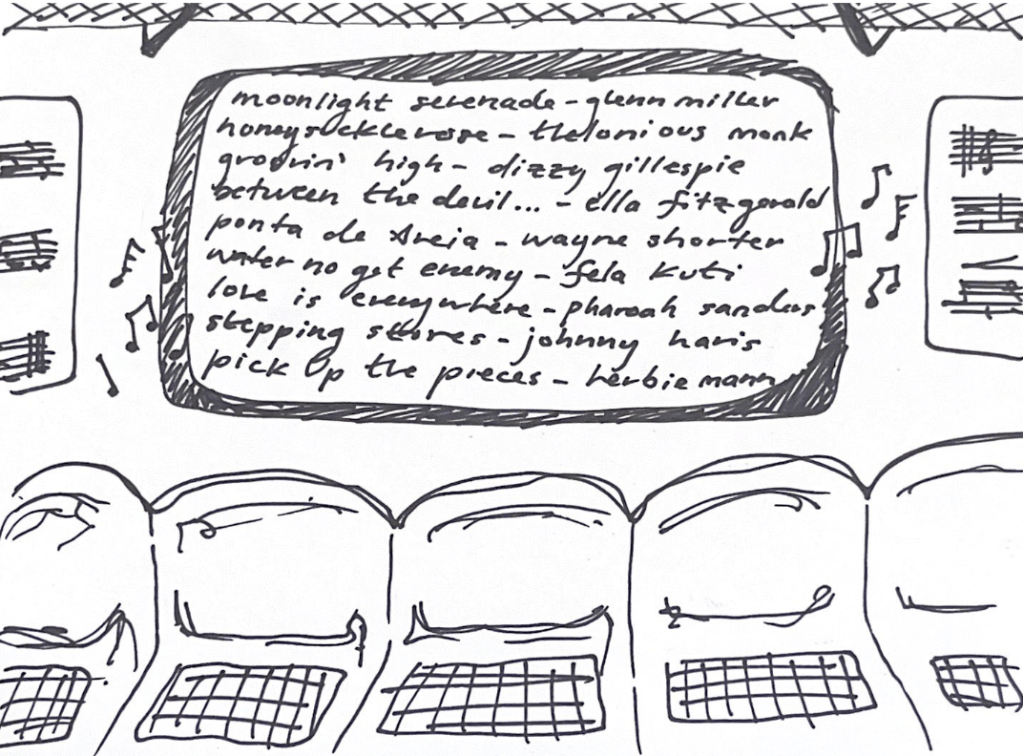 moonlight serenade - glenn miller
honeysuckle rose - thelonious monk
groovin' high - dizzy gillespie
between the devil... - ella fitzgerald
ponta de Areia - wayne shorter
water no get enemy - fela kuti
love is everywhere - pharoah sanders
stepping stones - johnny haris
pick up the pieces - herbie mann